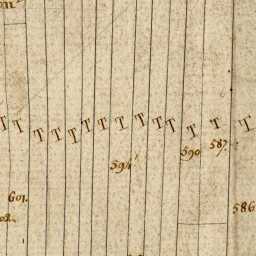 T T T T T T T T T T T T T T
587.
590
591
601.
586